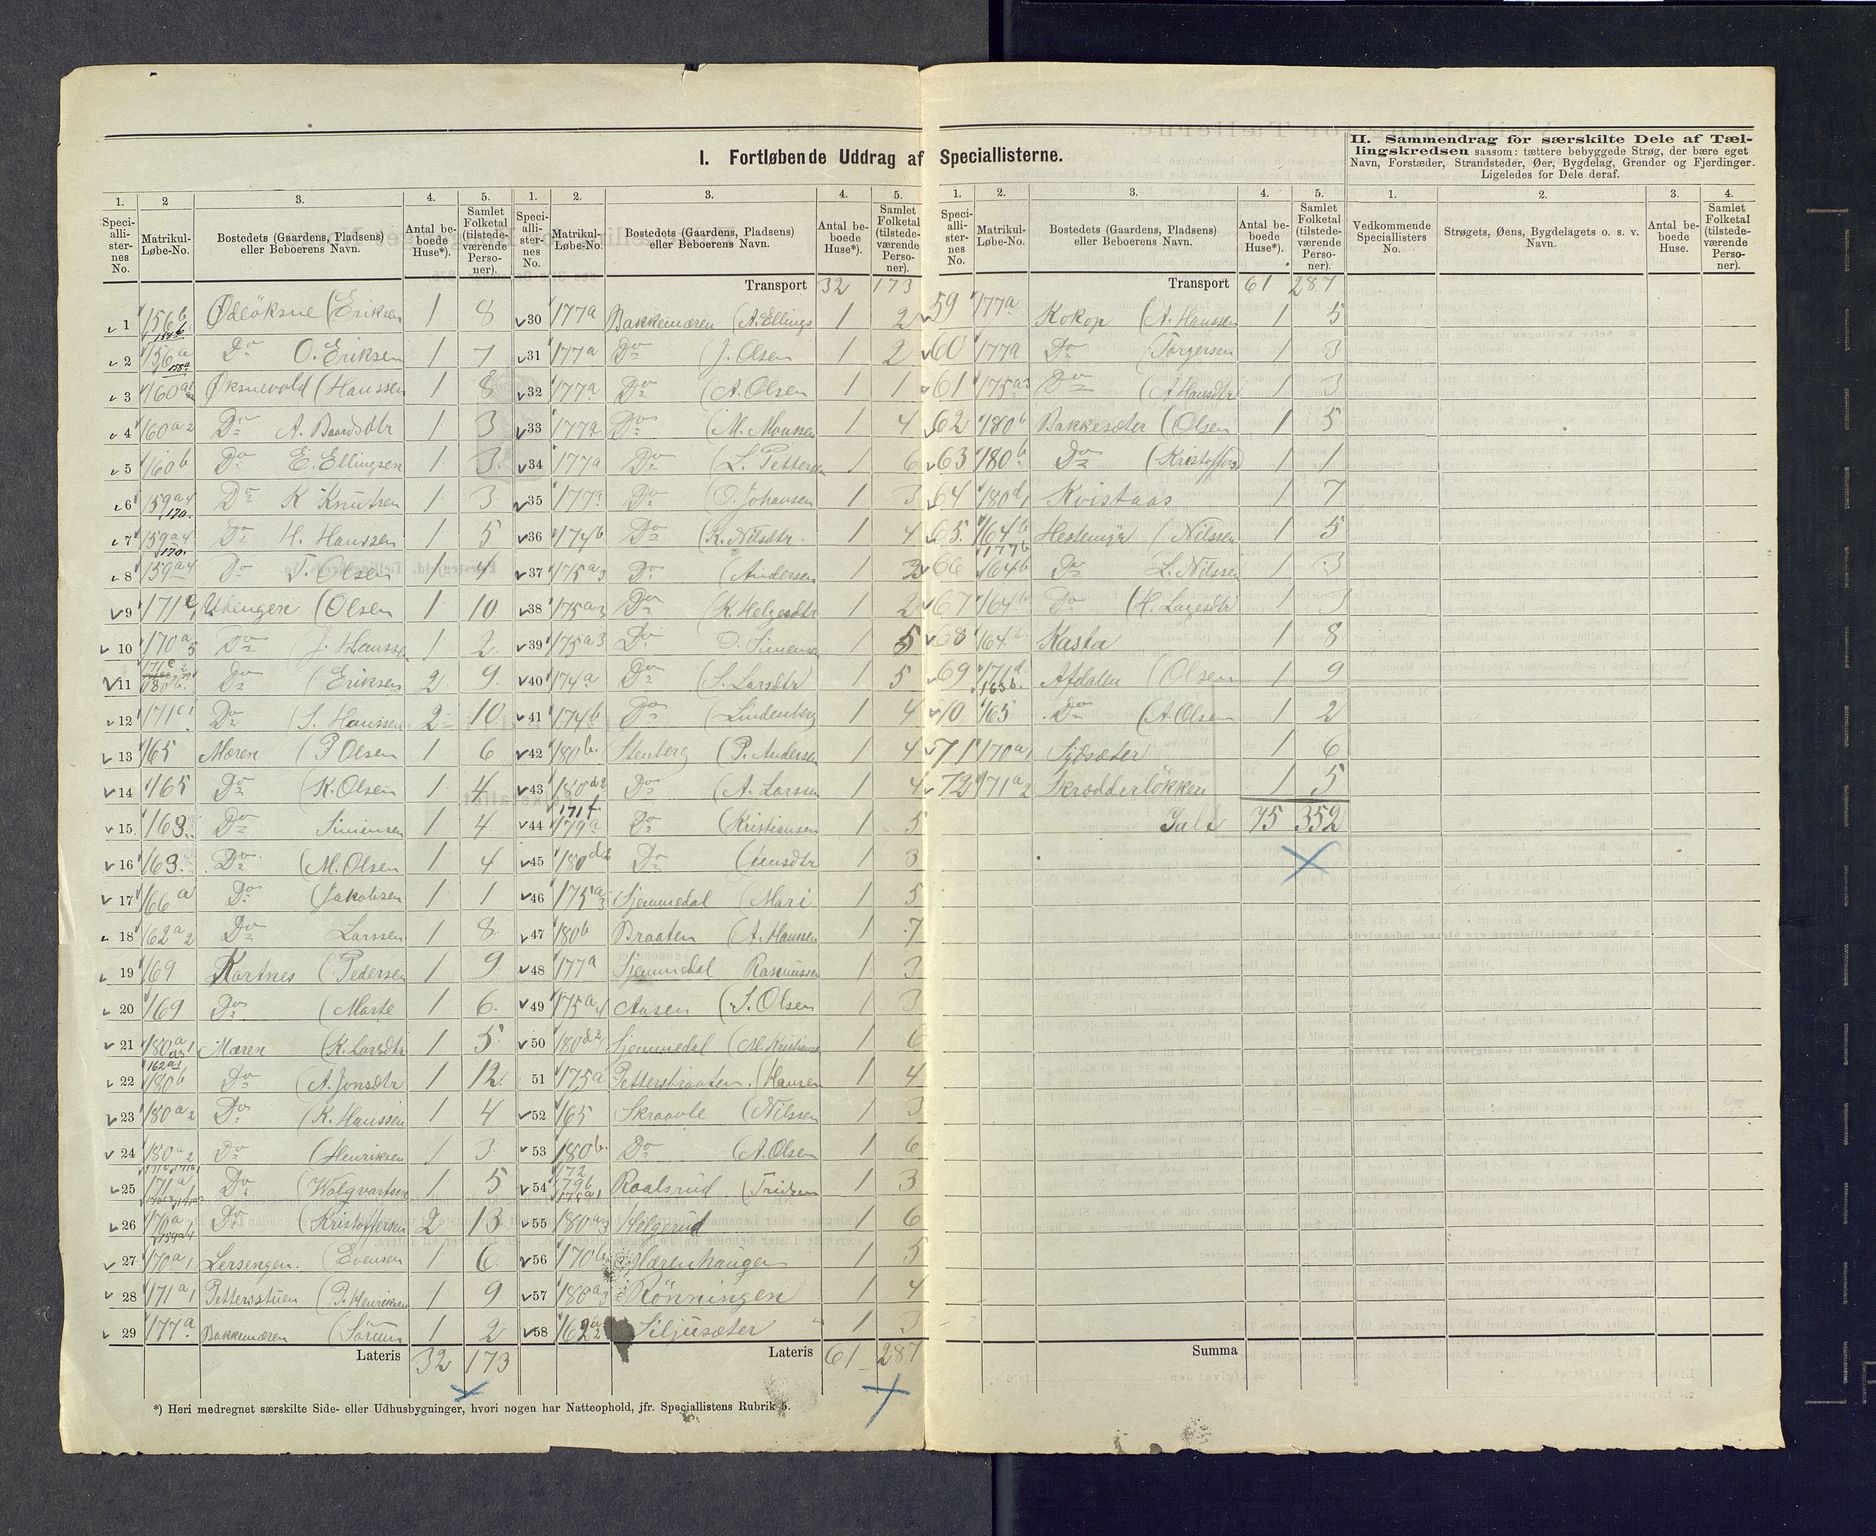 I. Fortløbende Uddrag af Speciallisterne.
II. Sammendrag for særskilte Dele af Tæl-
lingskredsen saasom: tættere bebyggede Strøg, der bære eget
Navn, Forstæder, Strandsteder, Øer, Bygdelag, Grender og Fjerdinger.
Ligeledes for Dele deraf.
1. 2 3. 4. 5.
Speciallisternes No. Matrikul-Løbe-No. Bostedets (Gaardens, Pladsens) eller Beboerens Navn. Antal beboede Huse*). Samlet Folketal (tilstedeværende Personer).
1 156b Ødeöksne (Eriksen 1 8
2 156a Do O. Eriksen 1 7
3 160a1 Øksnevold (Hanssen 1 8
4 160a2 Do A. Baardsdtr 1 3
5 160b Do E. Ellingsen 1 3
6 159a4 170 Do K Knutsen 1 3
7 159a4 170 Do H. Hanssen 1 5
8 159a4 Do T. Olsen 1 4
9 171 Udengen (Olsen 1 10
10 170a5 Do J. Hansse 1 2
11 180b Do (Eriksen 2 9
12 171c1 Do (S. Hanssen 2 10
13 165 Mæren (P Olsen 1 6
14 165 Do (K. Olsen 1 4
15 163 Do Simensen 1 4
16 163 Do (M. Olsen 1 4
17 166a Do (Jakobsen 1 1
18 162a2 Do Larssen 1 8
19 169 Kortnes (Pedersen 1 9
20 169 Do (Marte 1 6
21 180a1 Mæren (K. Larsdtr 1 5
22 162a1 180b Do (A. Jonsdtr 1 12
23 180a2 Do (K. Hanssen 1 4
24 180a2 Do (Henriksen 1 3
25 171a1 Do (Wolgvartsen 1 5
26 170a1 159a4 Do (Kristoffersen 2 13
27 170a1 Lersengen (Evensen 1 6
28 171a1 Pettersstuen (P. Henriksen 1 9
29 177a Bakkemæren (Sörum 1 2
Lateris 32 173
1. 2. 3. 4. 5.
Speciallisternes No. Matrikul-Løbe-No. Bostedets (Gaardens, Pladsens) eller Beboerens Navn. Antal beboede Huse*). Samlet Folketal (tilstedeværende Personer).
Transport 32 173
30 177a Bakkemæren (A. Ellings 1 2
31 177a Do (J. Olsen 1 2
32 177a Do (A. Olsen 1 1
33 177a Do (M. Monssen 1 4
34 177a Do (L. Pettersen 1 6
35 177a Do (O. Johansen 1 3
36 174b Do (K. Nilsdtr. 1 4
37 175a3 Do (Andersen 1 3
38 175a3 Do (K. Helgesdtr 1 2
39 175a3 Do O. Simensen 1 5
40 174a Do (S. Larsdtr 1 5
41 174b Do (Lindenberg 1 4
42 180b Stenberg (P. Andersen 1 4
43 180d2 Do (A. Larssen 1 4
44 171f 179a Do (Kristiansen 1 5
45 180d2 Do (Jensdtr 1 3
46 175a3 Sjemmedal (Mari 1 5
47 180b Braaten (A. Hanssen 1 7
48 177a Sjemmedal Rasmussen 1 3
49 175a4 Aasen (S. Olsen 1 3
50 180d2 Sjemmedal (M. Kristians 1 6
51 175a Pettersbraaten (Hansen 1 4
52 165 Skraavle (Nilssen 1 3
53 180b Do (A. Olsen 1 6
54 172 179b 175a1 Roalsrud (Tridsen 1 3
55 180a3 Helgerud 1 6
56 170b Mærenhaugen 1 5
57 180a3 Rönningen 1 4
58 162a2 Siljusæter 1 3
Lateris 61 287
1. 2. 3. 4. 5.
Speciallisternes No. Matrikul-Løbe-No. Bostedets (Gaardens, Pladsens) eller Beboerens Navn. Antal beboede Huse*). Samlet Folketal (tilstedeværende Personer).
Transport 61 287
59 177a Kokop (A. Hanssen 1 5
60 177a Do (Torgersen 1 3
61 175a3 Do (A Hansdtr 1 3
62 180b Bakkesæter (Olsen 1 5
63 180b Do (Kristoffers 1 1
64 180d1 Kvistaas 1 7
65 164b 177b Hestemyr (Nilssen 1 5
66 164b Do L. Nilssen 1 3
67 164b Do (H. Lagesdtr 1 3
68 164b Kasta 1 8
69 171d 163b Afdalen (Olsen 1 9
70 165 Do (A. Olsen 1 2
71 170a1 Sjösæter 1 6
72 171a2 Skrædderlökken 1 5
Ialt 75 352
Summa
1. 2. 3. 4.
Vedkommende Speciallisters No. Strøgets, Øens, Bygdelagets o. s. v. Navn. Antal beboede Huse. Samlet Folketal (tilstedeværende Personer).
*) Heri medregnet særskilte Side- eller Udhusbygninger, hvori nogen har Natteophold, jfr. Speciallistens Rubrik 5.